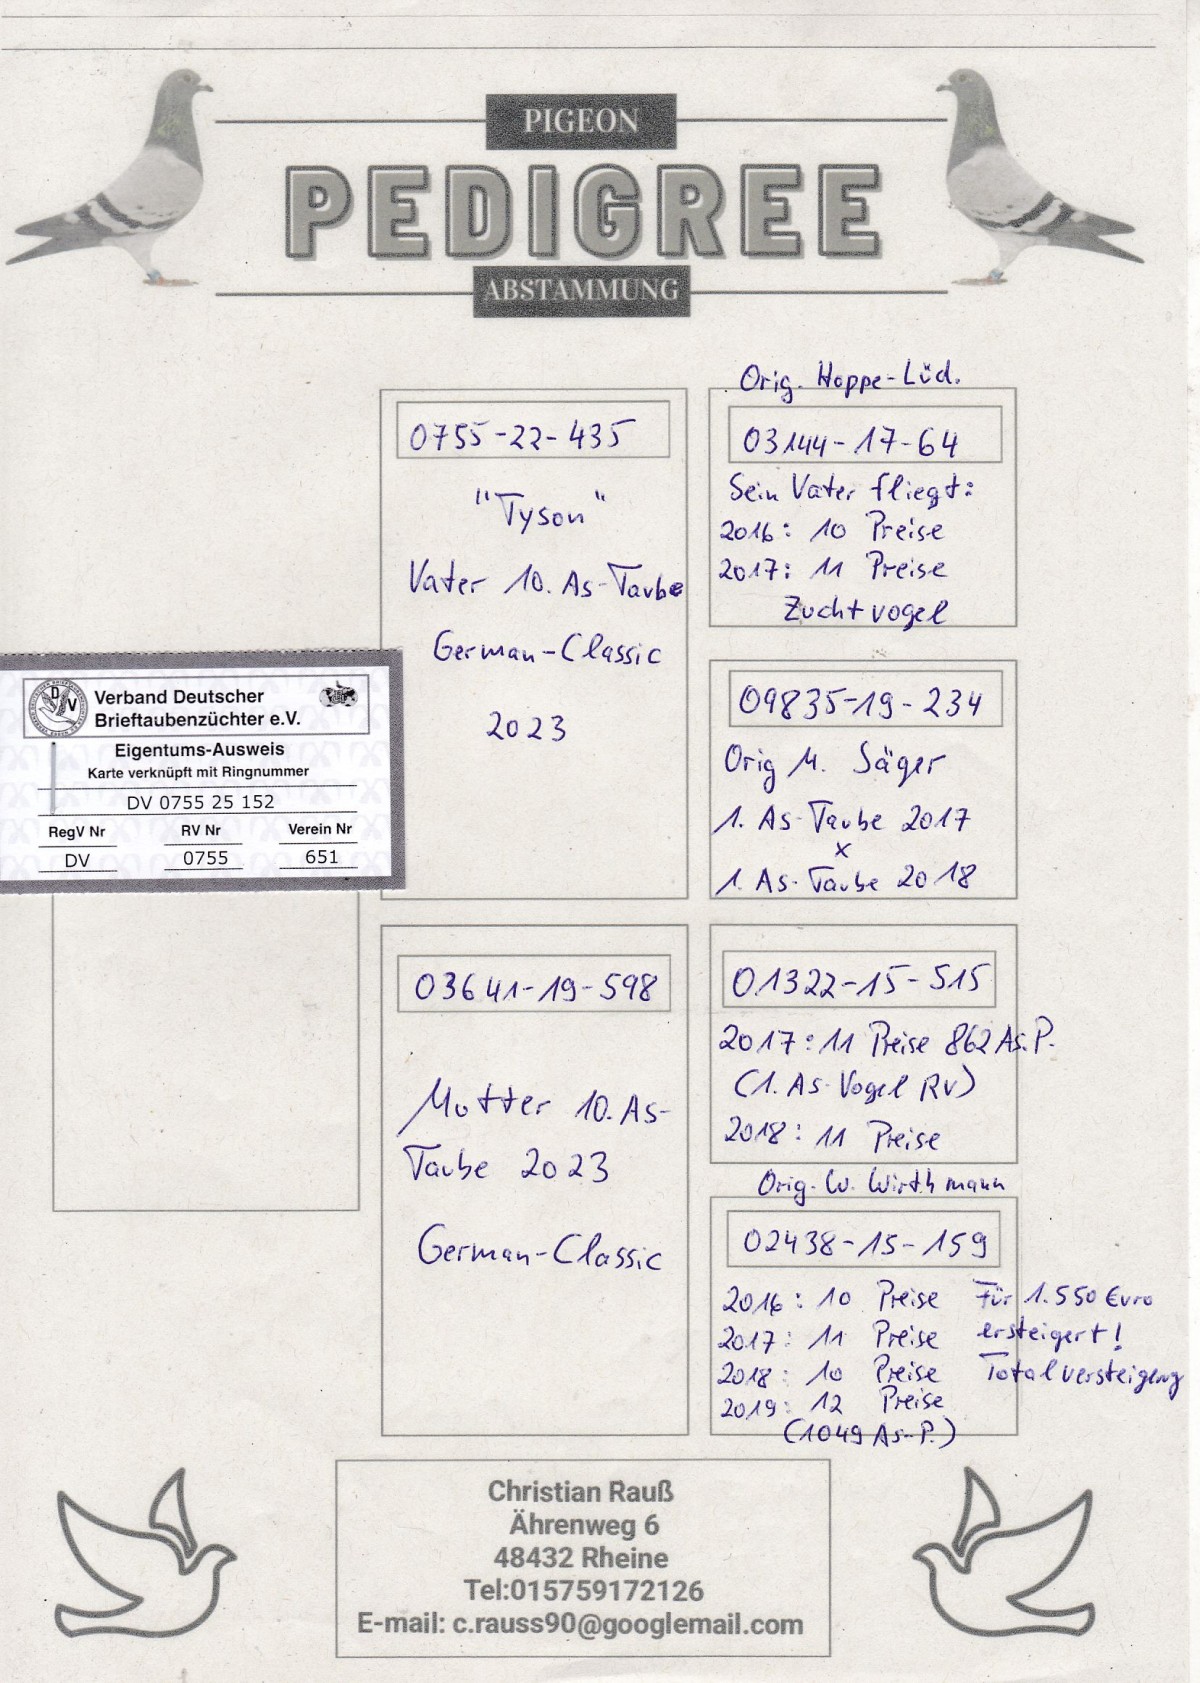 PIGEON
PEDIGREE
ABSTAMMUNG
0755-22-435
"Tyson"
Vater 10. As-Taube
German-Classic
2023
Orig. Hoppe-Lüd.
03144-17-64
Sein Vater fliegt:
2016: 10 Preise
2017: 11 Preise
Zuchtvogel
09835-19-234
Orig M. Säger
1. As-Taube 2017
x
1. As-Taube 2018
Verband Deutscher
Brieftaubenzüchter e.V.
Eigentums-Ausweis
Karte verknüpft mit Ringnummer
DV 0755 25 152
RegV Nr RV Nr Verein Nr
DV 0755 651
03641-19-598
Mutter 10. As-
Taube 2023
German-Classic
01322-15-515
2017: 11 Preise 862 As.P.
(1. As-Vogel RV)
2018: 11 Preise
Orig. W. Wirthmann
02438-15-159
2016: 10 Preise Für 1.550 Euro
2017: 11 Preise ersteigert!
2018: 10 Preise Totalversteigerug
2019: 12 Preise
(1049 As-P.)
Christian Rauß
Ährenweg 6
48432 Rheine
Tel:015759172126
E-mail: c.rauss90@googlemail.com